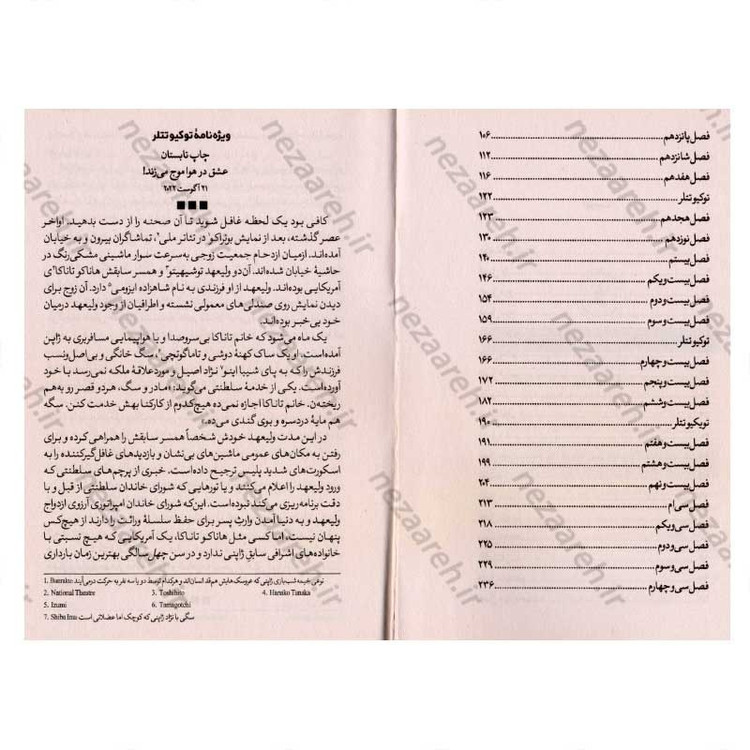 فصل پانزدهم ........ ۱۰۶
فصل شانزدهم ........ ۱۱۲
فصل هفدهم ........ ۱۱۶
توکیو تتلر ........ ۱۲۲
فصل هجدهم ........ ۱۲۳
فصل نوزدهم ........ ۱۳۰
فصل بیستم ........ ۱۴۰
فصل بیست و یکم ........ ۱۴۶
فصل بیست و دوم ........ ۱۵۴
فصل بیست و سوم ........ ۱۵۹
توکیو تتلر ........ ۱۶۶
فصل بیست و چهارم ........ ۱۶۶
فصل بیست و پنجم ........ ۱۷۲
فصل بیست و ششم ........ ۱۸۲
تویکیو تتلر ........ ۱۹۰
فصل بیست و هفتم ........ ۱۹۱
فصل بیست و هشتم ........ ۱۹۹
فصل بیست و نهم ........ ۲۰۴
فصل سی اُم ........ ۲۱۳
فصل سی و یکم ........ ۲۱۸
فصل سی و دوم ........ ۲۲۵
فصل سی و سوم ........ ۲۲۹
فصل سی و چهارم ........ ۲۳۶
ویژه‌نامهٔ توکیو تتلر
چاپ تابستان
عشق در هوا موج می‌زند!
۲۱ آگوست ۲۰۲۲
کافی بود یک لحظه غافل شوید تا آن صحنه را از دست بدهید. اواخر
عصر گذشته، بعد از نمایش بوتراکو۱ در تئاتر ملی۲، تماشاگران بیرون و به خیابان
آمده‌اند. از میان ازدحام جمعیت زوجی به سرعت سوار ماشینی مشکی‌رنگ در
حاشیهٔ خیابان شده‌اند. آن دو ولیعهد توشیهیتو۳ و همسر سابقش هاناکو تاناکا۴ی
آمریکایی بوده‌اند. ولیعهد از او فرزندی به نام شاهزاده ایزومی۵ دارد. آن زوج برای
دیدن نمایش روی صندلی‌های معمولی نشسته و اطرافیان از وجود ولیعهد درمیان
خود بی‌خبر بوده‌اند.
یک ماه می‌شود که خانم تاناکا بی‌سروصدا و با هواپیمایی مسافربری به ژاپن
آمده‌است. او یک ساک کهنهٔ دوشی و تاماگوچی۶، سگ خانگی و بی‌اصل‌ونسب
فرزندش را که به پای شیبا اینو۷ نژاد اصیل و موردعلاقهٔ ملکه نمی‌رسد با خود
آورده‌است. یکی از خدمهٔ سلطنتی می‌گوید: «مادر و سگ، هر دو قصر رو به‌هم
ریخته‌ن. خانم تاناکا اجازه نمی‌ده هیچ‌کدوم از کارکنا بهش خدمت کنن. سگه
هم مایهٔ دردسره و بوی گندی می‌ده.»
در این مدت ولیعهد خودش شخصاً همسر سابقش را همراهی کرده و برای
رفتن به مکان‌های عمومی ماشین‌های بی‌نشان و بازدیدهای غافل‌گیرکننده را به
اسکورت‌های شدید پلیس ترجیح داده‌است. خبری از پرچم‌های سلطنتی که
ورود ولیعهد را اعلام می‌کنند و یا تورهایی که شورای خاندان سلطنتی از قبل و با
دقت برنامه‌ریزی می‌کند نبوده‌است. این‌که شورای خاندان امپراتوری آرزوی ازدواج
ولیعهد و به دنیا آمدن وارث پسر برای حفظ سلسلهٔ وراثت را دارند از هیچ‌کس
پنهان نیست، اما کسی مثل هاناکو تاناکا، یک آمریکایی که هیچ نسبتی با
خانواده‌های اشرافی سابق ژاپنی ندارد و در سن چهل‌سالگی بهترین زمان بارداری
1. Bunraku نوعی خیمه شب‌بازی ژاپنی که عروسک‌هایش هم‌قد انسان‌اند و هرکدام توسط دو یا سه نفر به حرکت درمی‌آیند
2. National Theater 3. Toshihito 4. Hanako Tanaka
5. Izumi 6. Tamagotchi
7. Shiba Inu سگی با نژاد ژاپنی که کوچک اما عضلانی است
nezaareh.ir